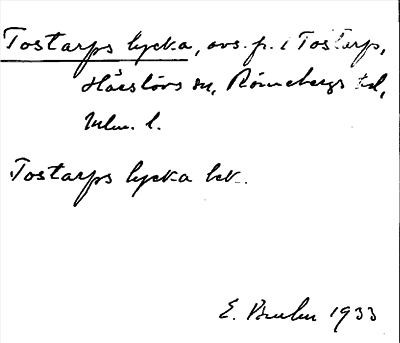 Tostarps lycka, avs. fr. i Tostarp,
Härslövs sn, Rönnebergs hd,
Mlm. l.
Tostarps lycka bet.
E. 1933